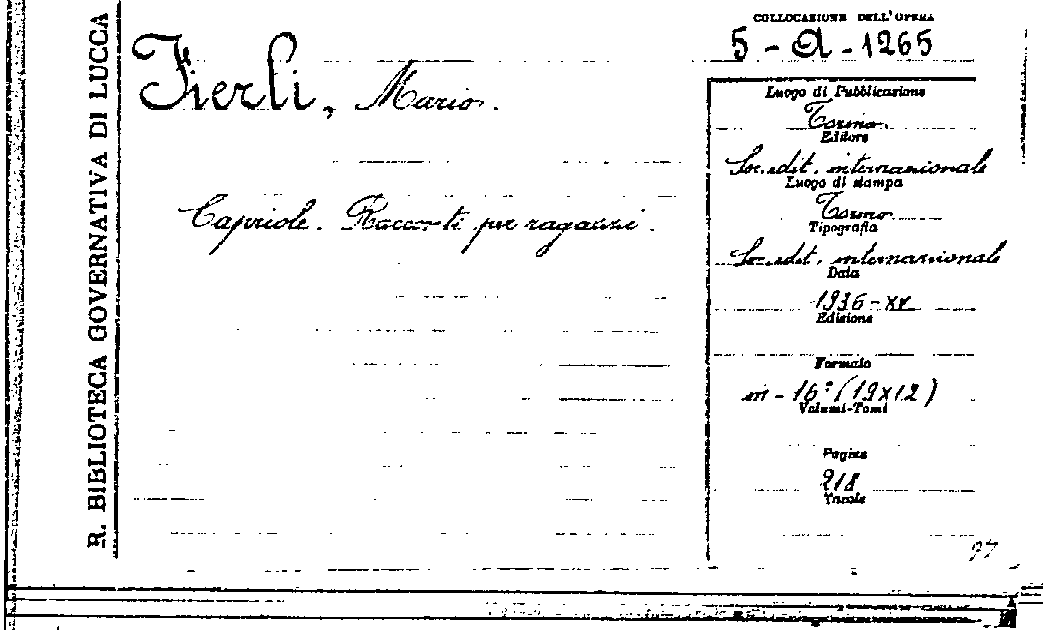 R. BIBLIOTECA GOVERNATIVA DI LUCCA
COLLOCAZIONE DELL'OPERA
5 - A - 1265
Fierli, Mario.
Capriole. Racconti per ragazzi.
Luogo di Pubblicazione
Torino
Editore
Soc. edit. internazionale
Luogo di stampa
Torino
Tipografia
Soc. edit. internazionale
Data
1936 - XV
Edizione
Formato
in - 16° (19x12)
Volumi-Tomi
Pagine
218
Tavole
97